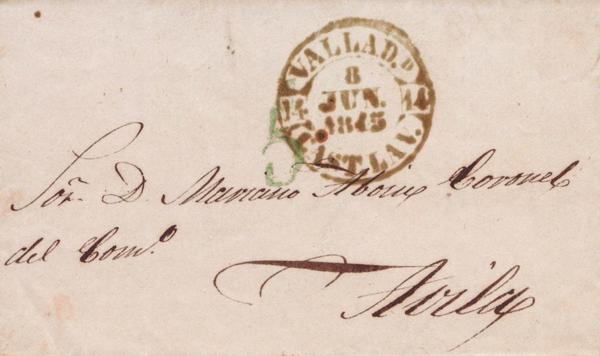 VALLAD.D
8
JUN.
1845
14 14
CAST.LA V.
5
Sor. D. Mariano Coronel
del Com.o
Avila